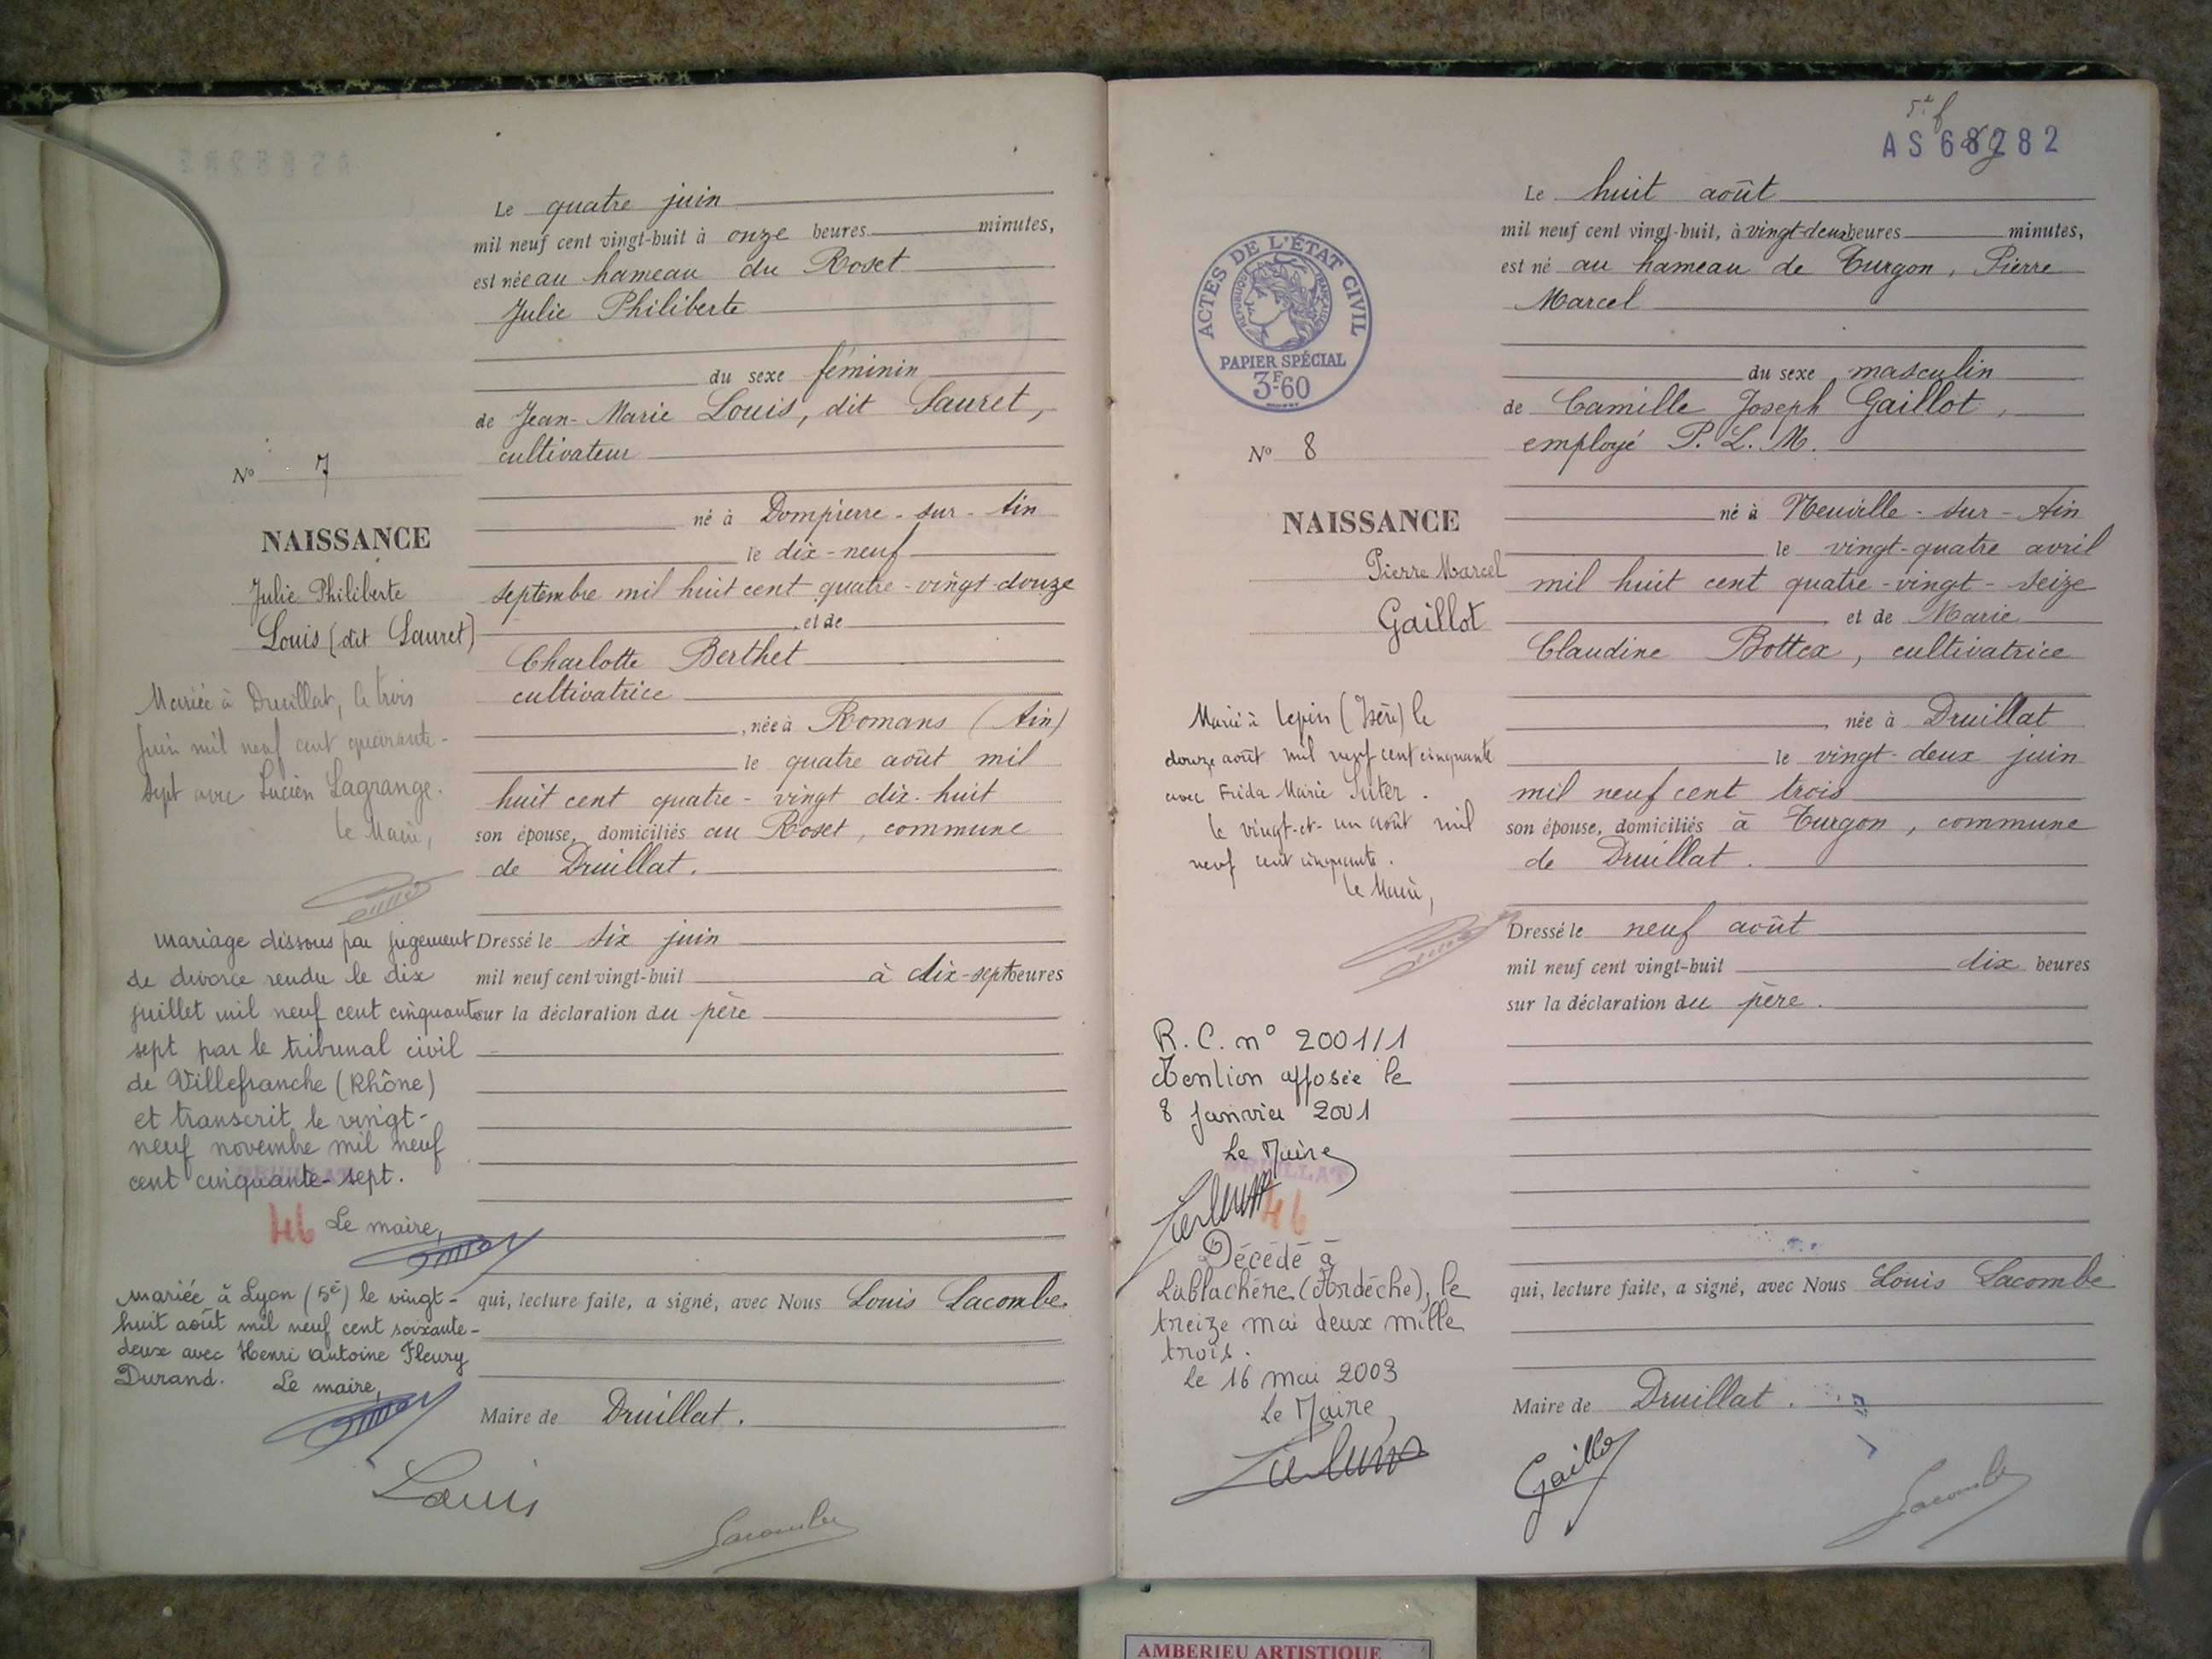 Le quatre juin
mil neuf cent vingt-huit à onze heures minutes,
est née au hameau du Roset
Julie Philiberte
du sexe féminin
de Jean-Marie Louis, dit Lauret,
cultivateur
né à Dompierre-sur-Ain
le dix-neuf
septembre mil huit cent quatre-vingt-douze
, et de
Charlotte Berthet
cultivatrice
, née à Romans (Ain)
le quatre août mil
huit cent quatre-vingt dix-huit
son épouse, domiciliés au Roset, commune
de Druillat.
Dressé le six juin
mil neuf cent vingt-huit à dix-sept heures
sur la déclaration du père
qui, lecture faite, a signé, avec Nous Louis Lacombe.
Maire de Druillat.
Louis
Lacombe
N° 7
NAISSANCE
Julie Philiberte
Louis (dit Lauret)
Mariée à Druillat, le trois
juin mil neuf cent quarante-
sept avec Lucien Lagrange.
Le Maire,
mariage dissous par jugement
de divorce rendu le dix
juillet mil neuf cent cinquante
sept par le tribunal civil
de Villefranche (Rhône)
et transcrit le vingt-
neuf novembre mil neuf
cent cinquante-sept.
DRUILLAT
46 Le maire,
mariée à Lyon (5e) le vingt-
huit août mil neuf cent soixante-
deux avec Henri Antoine Fleury
Durand. Le maire,
5e f
AS 68282
Le huit août
mil neuf cent vingt-huit, à vingt-deux heures minutes,
est né au hameau de Turgon, Pierre
Marcel
du sexe masculin
de Camille Joseph Gaillot,
employé P.L.M.
né à Neuville-sur-Ain
le vingt-quatre avril
mil huit cent quatre-vingt-seize
, et de Marie
Claudine Bottex, cultivatrice
, née à Druillat
le vingt-deux juin
mil neuf cent trois
son épouse, domiciliés à Turgon, commune
de Druillat.
Dressé le neuf août
mil neuf cent vingt-huit dix heures
sur la déclaration du père.
qui, lecture faite, a signé, avec Nous Louis Lacombe
Maire de Druillat.
Gaillot
Lacombe
ACTES DE L'ÉTAT CIVIL
RÉPUBLIQUE FRANÇAISE
PAPIER SPÉCIAL
3F60
N° 8
NAISSANCE
Pierre Marcel
Gaillot
Marié à Lepin (Isère) le
douze août mil neuf cent cinquante
avec Frida Marie Suter.
le vingt-et-un août mil
neuf cent cinquante.
Le Maire,
R.C. n° 2001/1
Mention apposée le
8 Janvier 2001
Le Maire
DRUILLAT
46
Décédé à
Lablachère (Ardèche), le
treize mai deux mille
trois.
le 16 mai 2003
Le Maire,
AMBERIEU ARTISTIQUE